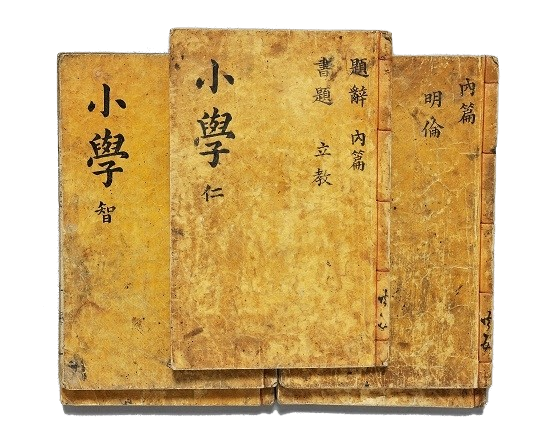 內篇
明倫
共五
題辭 內篇
書題 立教
小學 仁
共五
小學 智